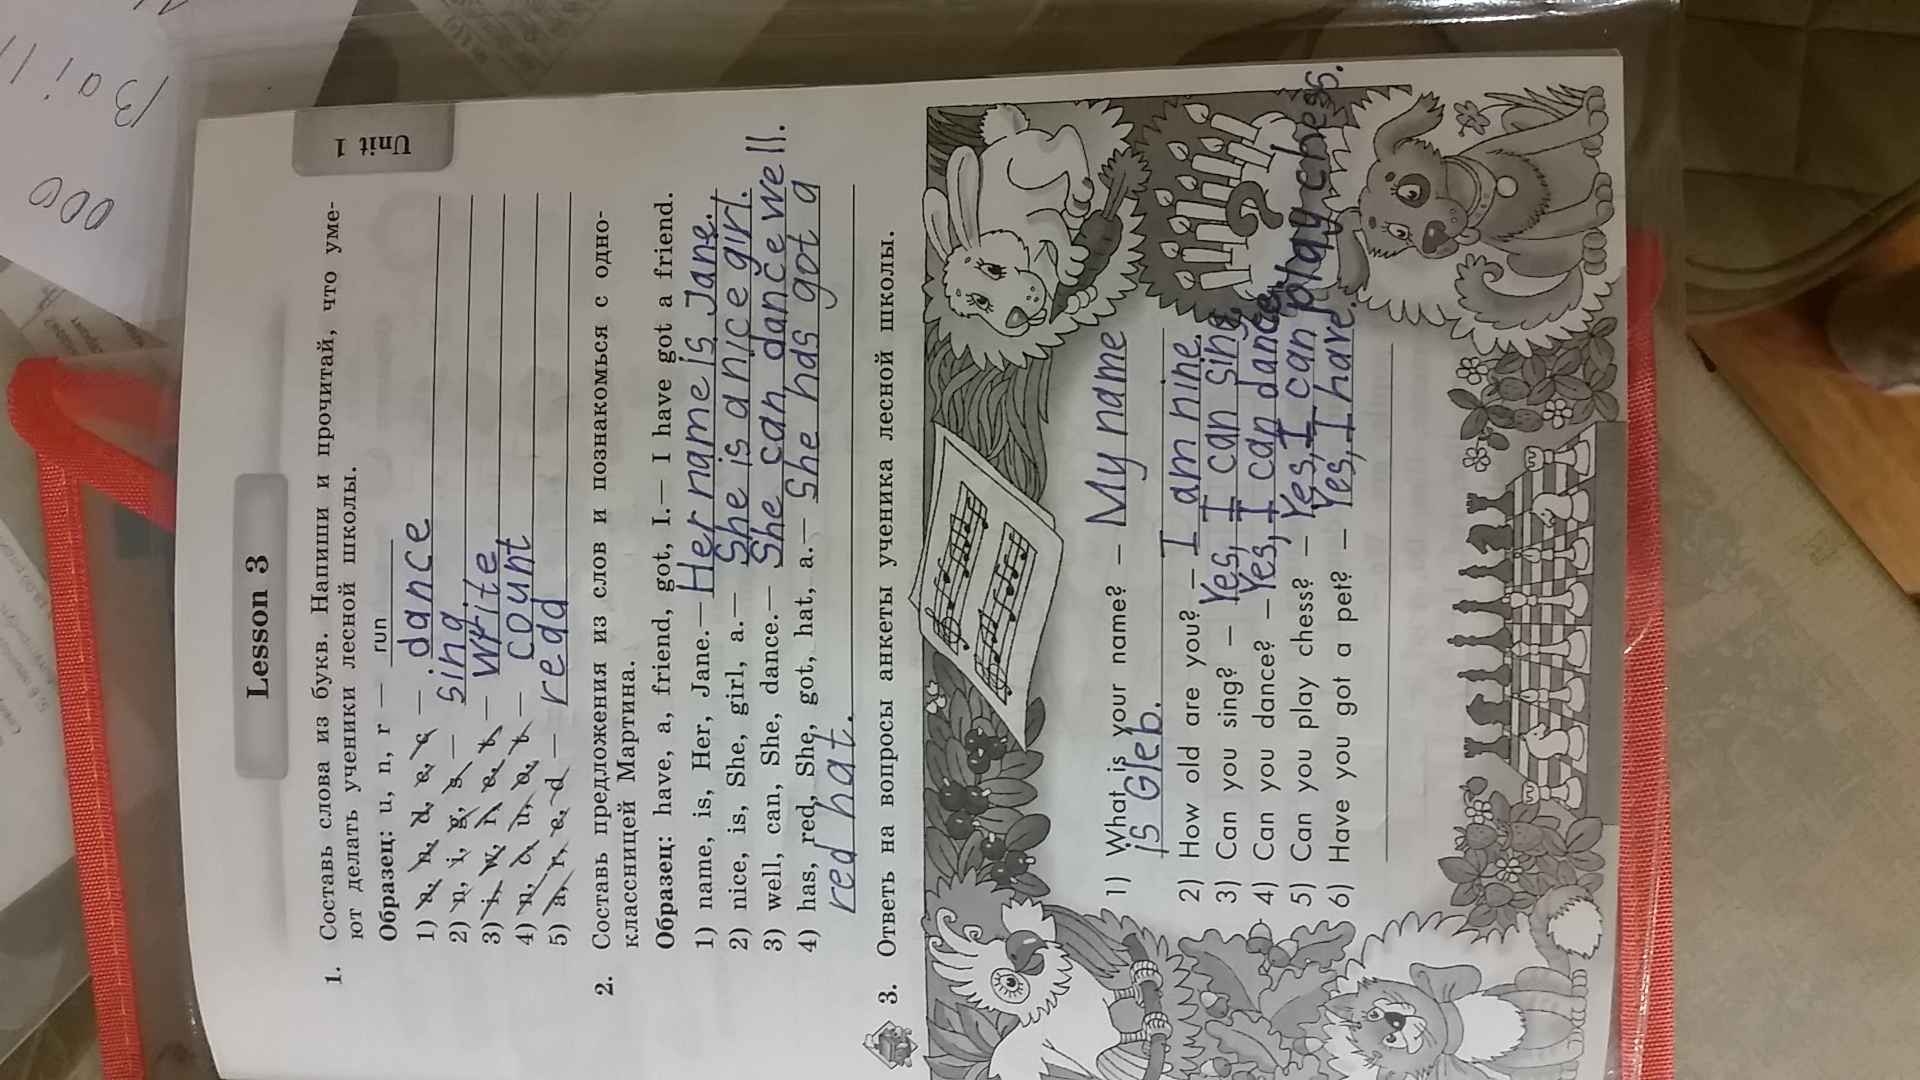 Unit 1
Lesson 3
1. Составь слова из букв. Напиши и прочитай, что уме-
ют делать ученики лесной школы.
Образец: u, n, r — run
1) a, n, d, e, c — dance
2) n, i, g, s — sing
3) i, w, r, e, t — write
4) n, c, u, o, t — count
5) a, r, e, d — read
2. Составь предложения из слов и познакомься с одно-
классницей Мартина.
Образец: have, a, friend, got, I. — I have got a friend.
1) name, is, Her, Jane. — Her name is Jane.
2) nice, is, She, girl, a. — She is a nice girl.
3) well, can, She, dance. — She can dance well.
4) has, red, She, got, hat, a. — She has got a
red hat.
3. Ответь на вопросы анкеты ученика лесной школы.
1) What is your name? — My name
is Gleb.
2) How old are you? — I am nine.
3) Can you sing? — Yes, I can sing
4) Can you dance? — Yes, I can dance.
5) Can you play chess? — Yes, I can play chess.
6) Have you got a pet? — Yes, I have.